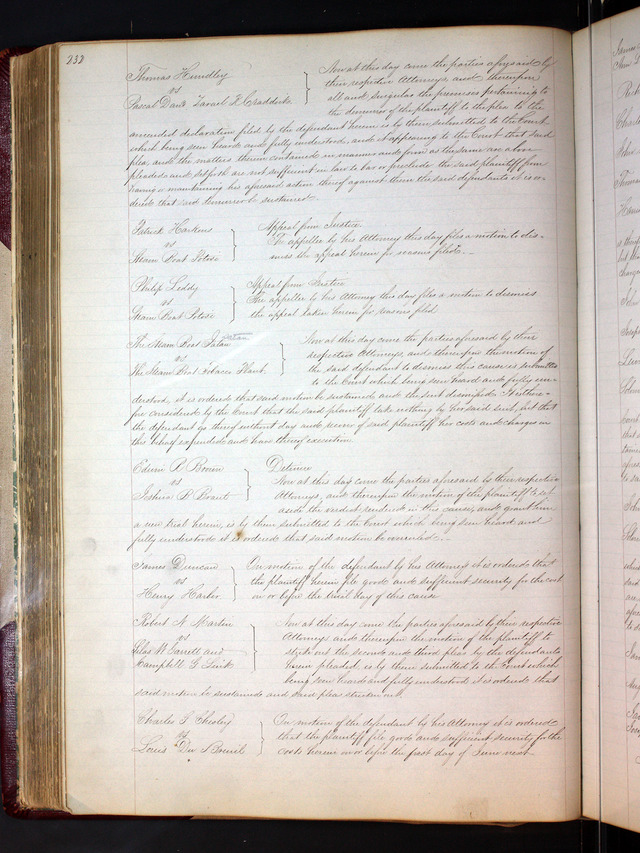 232
Thomas Hundley
vs
Pascal Davis Zarael R. Craddicks
Now at this day come the parties aforesaid by
their respective Attorneys and thereupon
all and singular the premises pertaining to
the demurrer of the plaintiff to the plea to the
amended declaration filed by the defendant herein is by them submitted to the Court
which being seen heard and fully understood and it appearing to the Court that said
plea and the matters therein contained in manner and form as the same are above
pleaded and set forth are not sufficient in law to bar or preclude the said plaintiff from
having or maintaining his aforesaid action thereof against them the said defendants it is con-
sidered that said demurrer be sustained
Patrick Hartens
vs
Steam Boat Potosi
Appeal from Justice.
The appellee by his Attorney this day files a motion to dis-
miss the appeal herein for reasons filed.
Philip Leddy
vs
Steam Boat Potosi
Appeal from Justice
The appellee by his Attorney this day files a motion to dismiss
the appeal taken herein for reasons filed
The Steam Boat Iatan
vs
The Steam Boat Tobacco Plant
Now at this day come the parties aforesaid by their
respective Attorneys, and thereupon the motion of
the said defendant to dismiss this cause is submitted
to the Court which being seen heard and fully un-
derstood, it is ordered that said motion be sustained and the suit dismissed. It is there-
fore considered by the Court that the said plaintiff take nothing by her said suit, but that
the defendant go thereof without day and recover of said plaintiff her costs and charges in
this behalf expended and have thereof execution.
Edwin R. Bowen
vs
Joshua B. Brant
Detinue
Now at this day come the parties aforesaid by their respective
Attorneys, and thereupon the motion of the plaintiff to set
aside the verdict rendered in this cause, and grant him
a new trial herein, is by them submitted to the Court which being seen heard and
fully understood it is ordered that said motion be overruled.
James Duncan
vs
Henry Harlor.
On motion of the defendant by his Attorney it is ordered that
the plaintiff herein file good and sufficient security for the cost
on or before the trial day of this cause
Robert N Martin
vs
Silas W. Garrett and
Campbell G. Link
Now at this day come the parties aforesaid by their respective
Attorneys and thereupon the motion of the plaintiff to
strike out the second and third plea by the defendants
herein pleaded is by them submitted to the Court which
being seen heard and fully understood it is ordered that
said motion be sustained and said pleas stricken out.
Charles S. Shirley
vs
Louis Dn
On motion of the defendant by his Attorney it is ordered
that the plaintiff file good and sufficient security for the
costs herein on or before the first day of June next